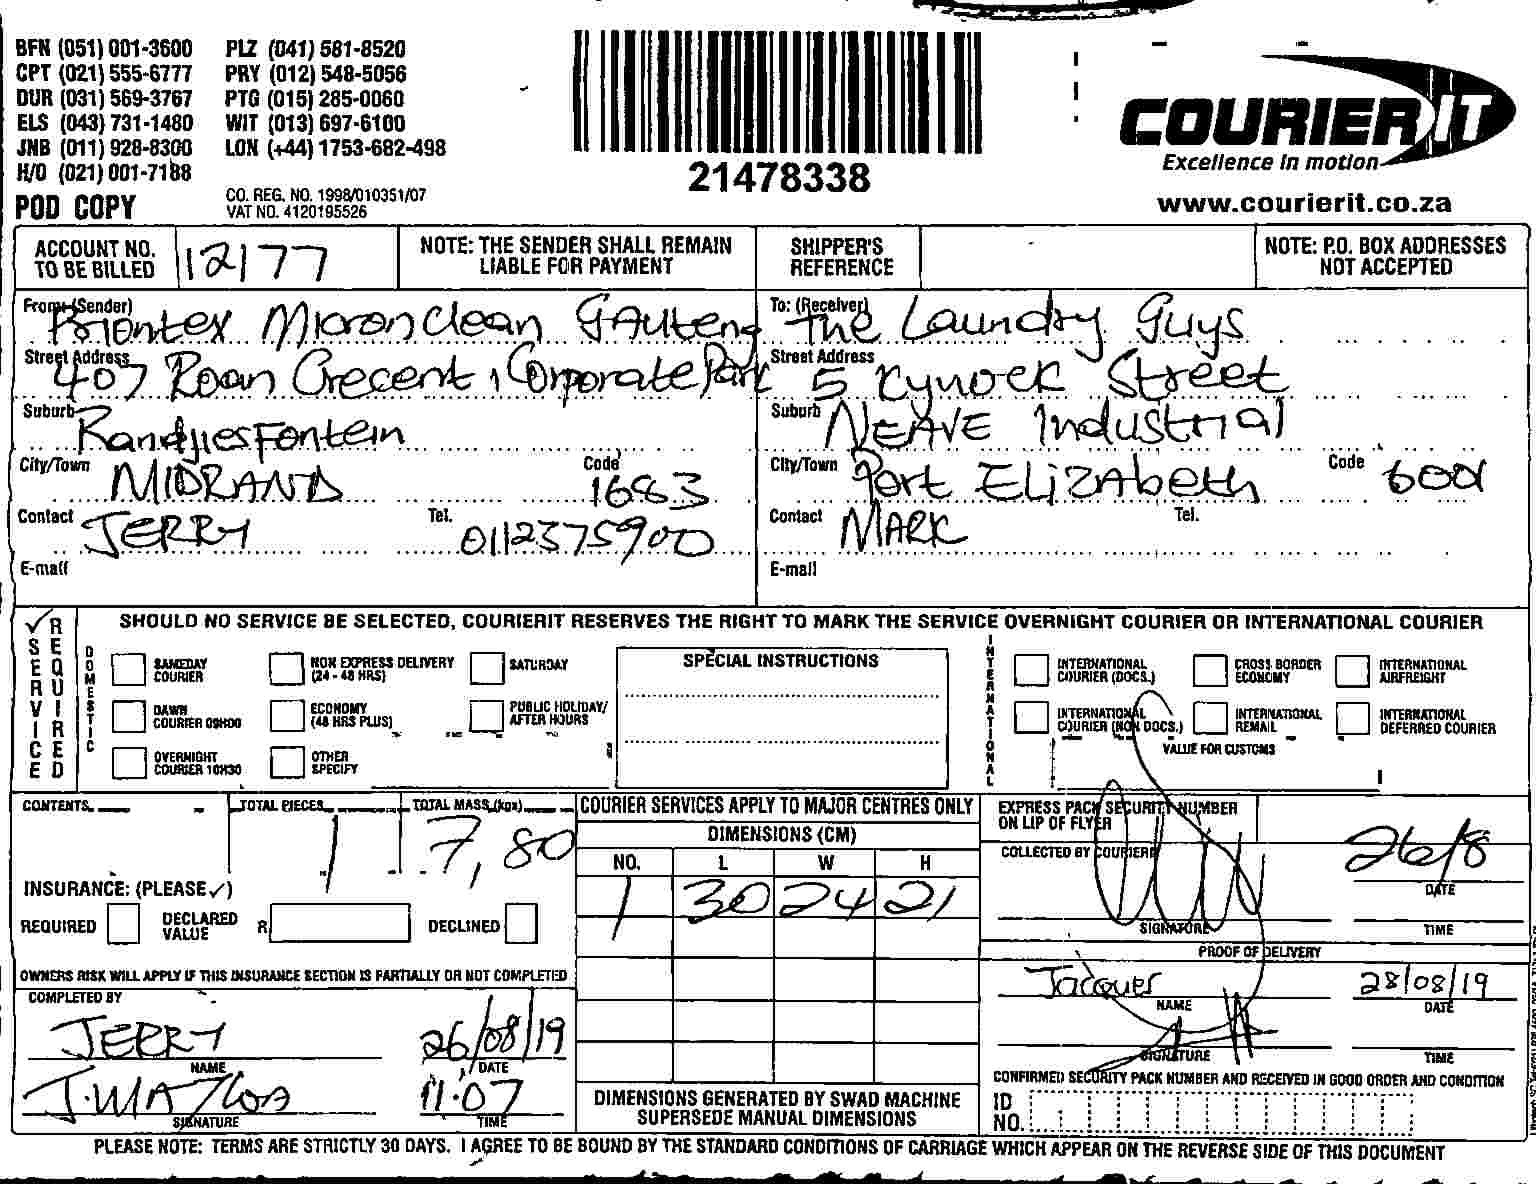 BFN (051) 001-3600 PLZ (041) 581-8520
CPT (021) 555-6777 PRY (012) 548-5056
DUR (031) 569-3767 PTG (015) 285-0060
ELS (043) 731-1480 WIT (013) 697-6100
JNB (011) 928-8300 LON (+44) 1753-682-498
H/O (021) 001-7188
POD COPY
CO. REG. NO. 1998/010351/07
VAT NO. 4120195526
21478338
COURIER IT
Excellence in motion
www.courierit.co.za
ACCOUNT NO. TO BE BILLED 12177
NOTE: THE SENDER SHALL REMAIN LIABLE FOR PAYMENT
SHIPPER'S REFERENCE
NOTE: P.O. BOX ADDRESSES NOT ACCEPTED
From: (Sender) Micronclean Gauteng
Street Address 407 Roan Crecent, Corporate Park
Suburb Randjiesfontein
City/Town MIDRAND Code 1683
Contact JERRY Tel. 0112375900
E-mail
To: (Receiver) The Laundry Guys
Street Address 5 Kynoek Street
Suburb NEAVE Industrial
City/Town Port ELizAbeth Code 6001
Contact MARK Tel.
E-mail
✓ SERVICE REQUIRED
SHOULD NO SERVICE BE SELECTED, COURIERIT RESERVES THE RIGHT TO MARK THE SERVICE OVERNIGHT COURIER OR INTERNATIONAL COURIER
DOMESTIC
SAMEDAY COURIER
NON EXPRESS DELIVERY (24 - 48 HRS)
SATURDAY
DAWN COURIER 09H00
ECONOMY (48 HRS PLUS)
PUBLIC HOLIDAY/ AFTER HOURS
OVERNIGHT COURIER 10H30
OTHER SPECIFY
SPECIAL INSTRUCTIONS
INTERNATIONAL
INTERNATIONAL COURIER (DOCS.)
CROSS BORDER ECONOMY
INTERNATIONAL AIRFREIGHT
INTERNATIONAL COURIER (NON DOCS.)
INTERNATIONAL REMAIL
INTERNATIONAL DEFERRED COURIER
VALUE FOR CUSTOMS
CONTENTS
TOTAL PIECES 1
TOTAL MASS (kgs) 7,80
INSURANCE: (PLEASE ✓)
REQUIRED DECLARED VALUE R DECLINED
OWNERS RISK WILL APPLY IF THIS INSURANCE SECTION IS PARTIALLY OR NOT COMPLETED
COMPLETED BY
JERRY 26/08/19
NAME DATE
11.07
SIGNATURE TIME
COURIER SERVICES APPLY TO MAJOR CENTRES ONLY
DIMENSIONS (CM)
NO. L W H
1 30 24 21
DIMENSIONS GENERATED BY SWAD MACHINE SUPERSEDE MANUAL DIMENSIONS
EXPRESS PACK SECURITY NUMBER ON LIP OF FLYER
COLLECTED BY COURIERIT
26/8
DATE
SIGNATURE TIME
PROOF OF DELIVERY
Jacques 28/08/19
NAME DATE
SIGNATURE TIME
CONFIRMED SECURITY PACK NUMBER AND RECEIVED IN GOOD ORDER AND CONDITION
ID NO.
PLEASE NOTE: TERMS ARE STRICTLY 30 DAYS. I AGREE TO BE BOUND BY THE STANDARD CONDITIONS OF CARRIAGE WHICH APPEAR ON THE REVERSE SIDE OF THIS DOCUMENT